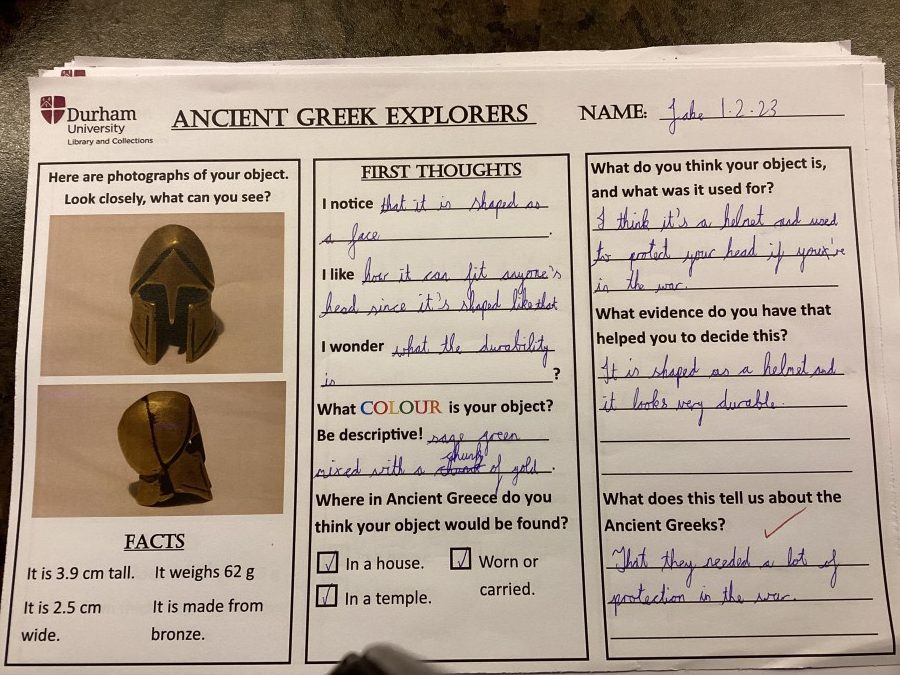 Durham
University
Library and Collections
ANCIENT GREEK EXPLORERS
NAME: Jake 1.2.23
Here are photographs of your object.
Look closely, what can you see?
FACTS
It is 3.9 cm tall. It weighs 62 g
It is 2.5 cm wide. It is made from bronze.
FIRST THOUGHTS
I notice that it is shaped as
a face.
I like how it can fit anyone's
head since it's shaped like that
I wonder what the durability
is ?
What COLOUR is your object?
Be descriptive! sage green
mixed with a chunk of gold.
Where in Ancient Greece do you
think your object would be found?
☑ In a house. ☑ Worn or carried.
☑ In a temple.
What do you think your object is,
and what was it used for?
I think it's a helmet and used
to protect your head if you're
in the war.
What evidence do you have that
helped you to decide this?
It is shaped as a helmet and
it looks very durable.
What does this tell us about the
Ancient Greeks?
That they needed a lot of
protection in the war.